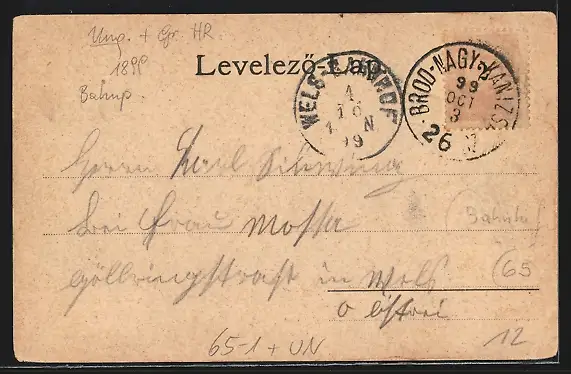 Ung. + Gr. HR
1899
Bahnp.
Levelező-Lap
WELS-BAHNHOF
4
10
1 N
99
BROD-NAGY-KANIZS
99
OCT
3
26
Herrn Karl
bei Frau Mosser
in Wels
o östrei
65
65-1 + UN
12